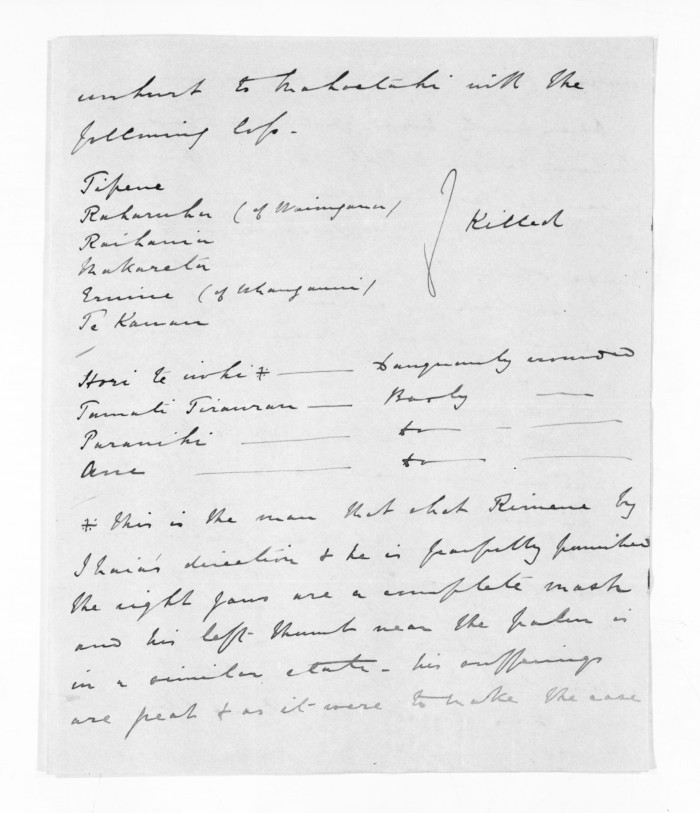 unhurt to Mahoetahi with the
following loss -
Tipene
Raharuhu (of Waiongona)
Raihania
Makareta
Eruine (of Whanganui)
Te Kanau
} Killed
Hori te iwhi * —— Dangerously wounded
Tamati Tirauran — Badly —
Paranihi —— do — —
Ane —— do — —
* This is the man that shot Rimene by
Ihaia's direction & he is fearfully punished
the right jaws are a complete mash
and his left thumb near the palm is
in a similar state - his sufferings
are great & as it were to make the case